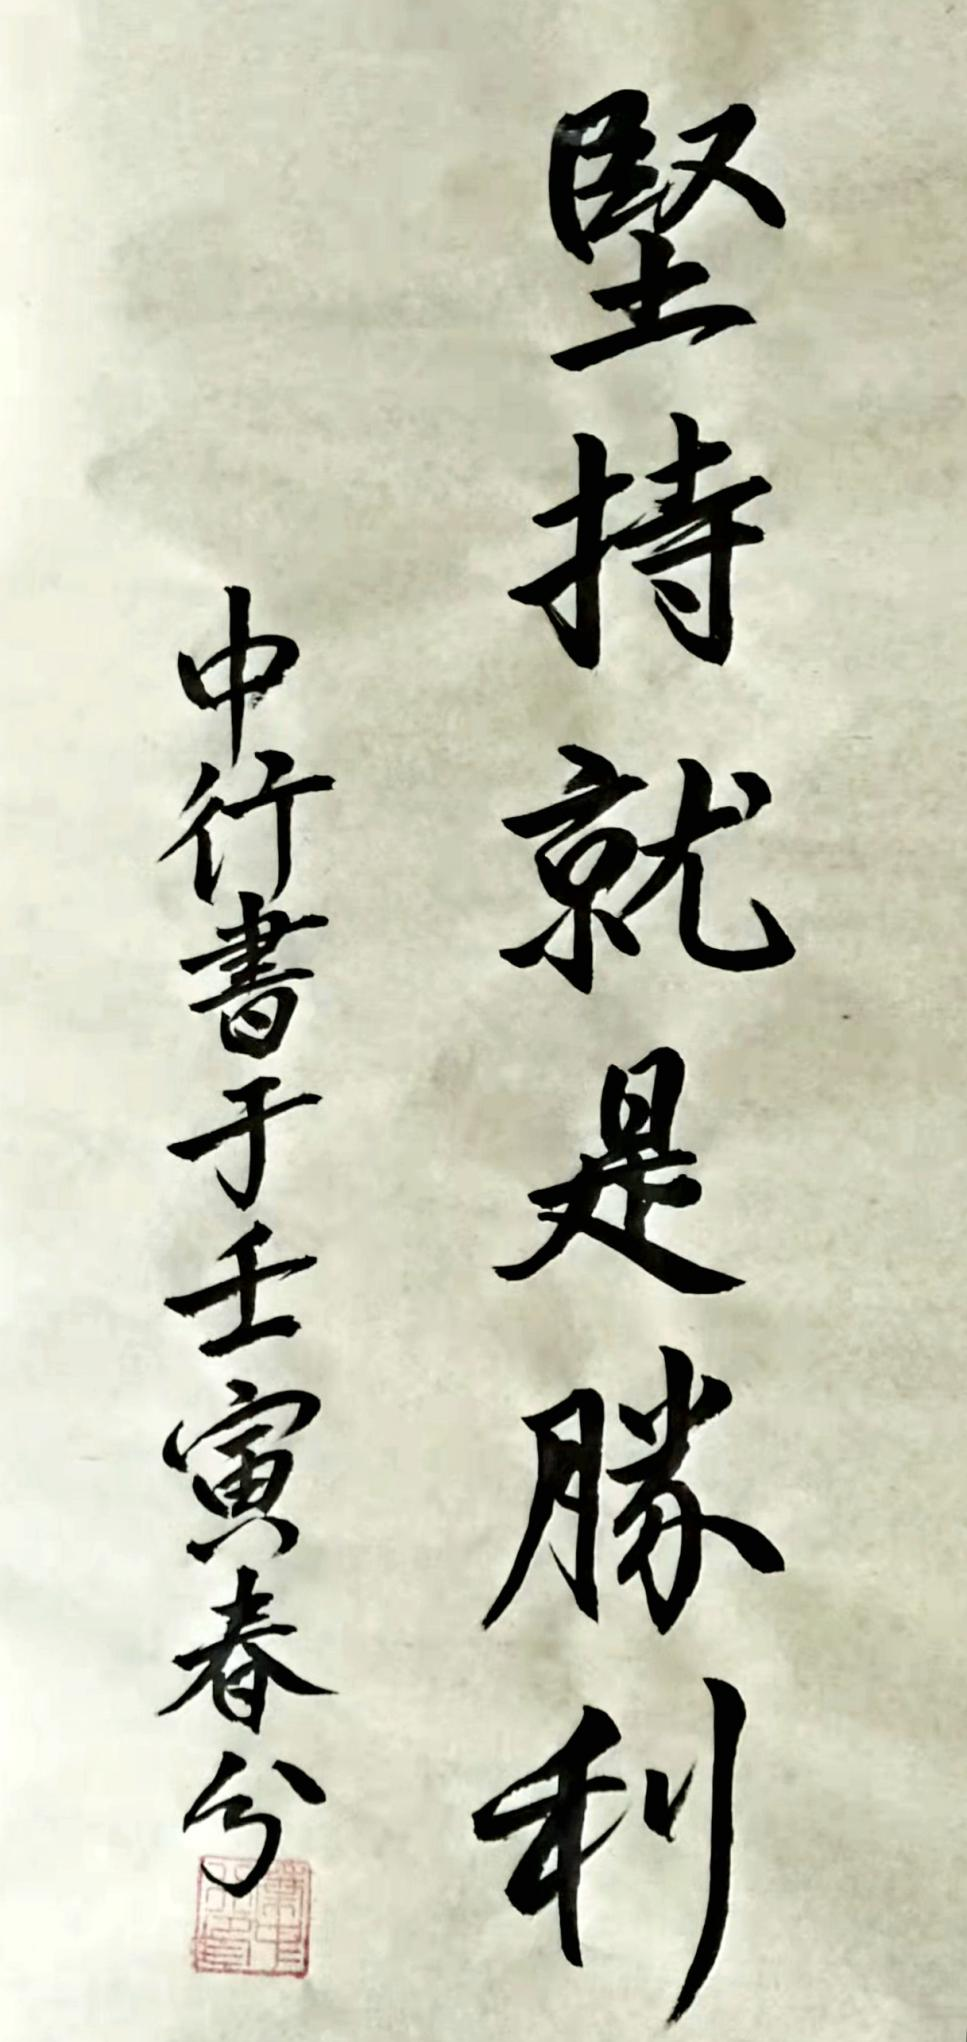 堅持就是勝利
中行書于壬寅春分